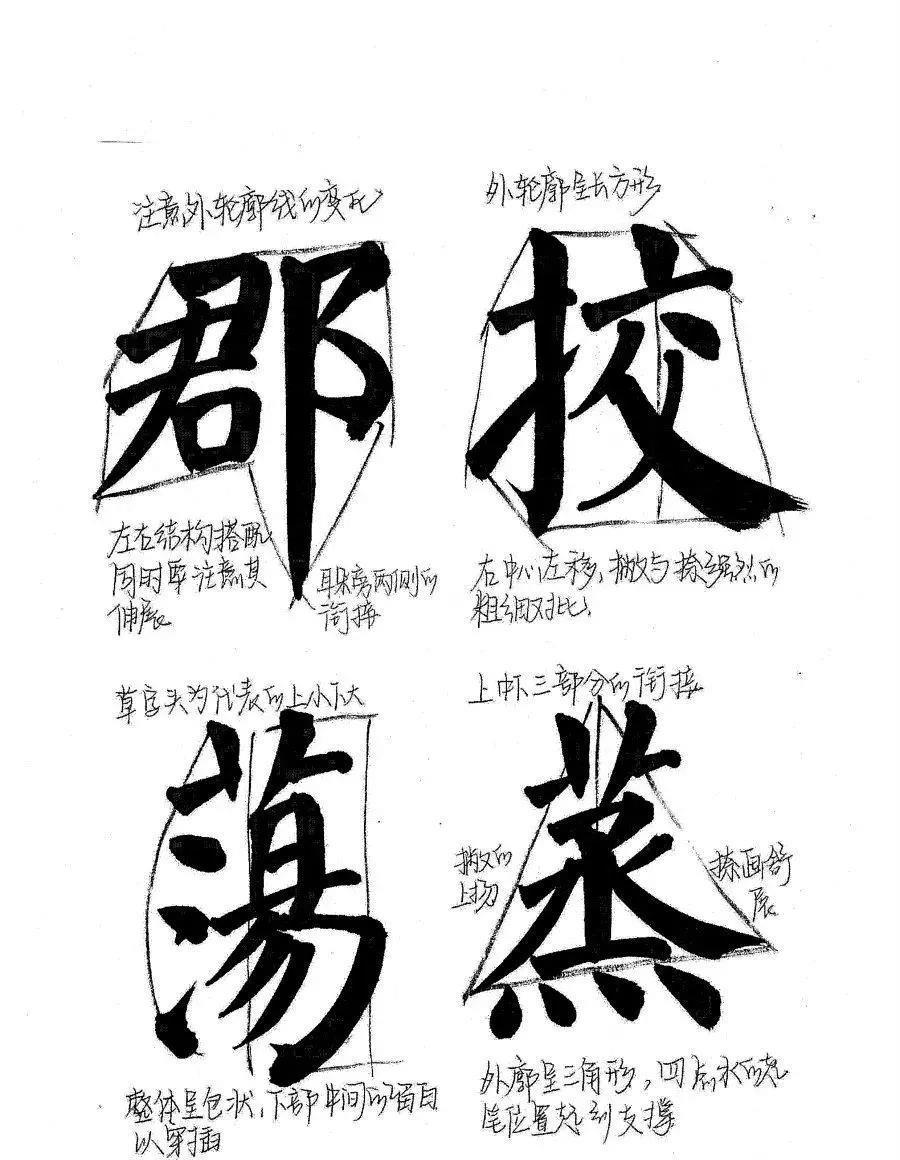 注意外轮廓线的变化
郡
左右结构搭配
同时要注意其
伸展
耳朵旁两侧的
衔接
外轮廓呈长方形
挍
右中心左移，撇与捺强烈的
粗细对比
草字头为代表的上小下大
蕩
整体呈包状，下部中间的留白
以穿插
上中下三部分的衔接
撇的
上扬
蒸
捺画舒
展
外廓呈三角形，四点水的起
笔位置起到支撑